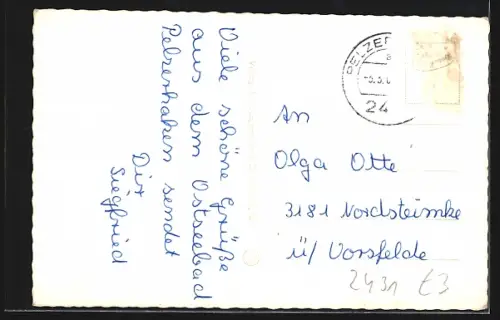 Viele schöne Grüße
aus dem Ostseebad
Pelzerhaken sendet
Dir
Siegfried
PELZE
24
An
Olga Otte
3181 Nordsteimke
ü/ Vorsfelde
2431 £3